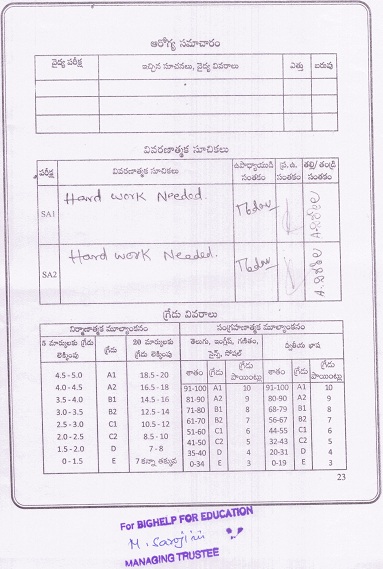 ఆరోగ్య సమాచారం
వైద్య పరీక్ష ఇచ్చిన సూచనలు, వైద్య వివరాలు ఎత్తు బరువు
వివరణాత్మక సూచికలు
పరీక్ష వివరణాత్మక సూచికలు ఉపాధ్యాయుడి సంతకం ప్ర.ఉ. సంతకం తల్లి/ తండ్రి సంతకం
SA1 Hard work Needed.
SA2 Hard work Needed.
గ్రేడు వివరాలు
నిర్మాణాత్మక మూల్యాంకనం సంగ్రహణాత్మక మూల్యాంకనం
5 మార్కులకు గ్రేడు లెక్కింపు గ్రేడు 20 మార్కులకు గ్రేడు లెక్కింపు తెలుగు, ఇంగ్లీష్, గణితం, సైన్స్, సోషల్ ద్వితీయ భాష
శాతం గ్రేడు గ్రేడు పాయింట్లు శాతం గ్రేడు గ్రేడు పాయింట్లు
4.5 - 5.0 A1 18.5 - 20 91-100 A1 10 91-100 A1 10
4.0 - 4.5 A2 16.5 - 18 81-90 A2 9 80-90 A2 9
3.5 - 4.0 B1 14.5 - 16 71-80 B1 8 68-79 B1 8
3.0 - 3.5 B2 12.5 - 14 61-70 B2 7 56-67 B2 7
2.5 - 3.0 C1 10.5 - 12 51-60 C1 6 44-55 C1 6
2.0 - 2.5 C2 8.5 - 10 41-50 C2 5 32-43 C2 5
1.5 - 2.0 D 7 - 8 35-40 D 4 20-31 D 4
0 - 1.5 E 7 కన్నా తక్కువ 0-34 E 3 0-19 E 3
23
For BIGHELP FOR EDUCATION
M. Sarojini
MANAGING TRUSTEE